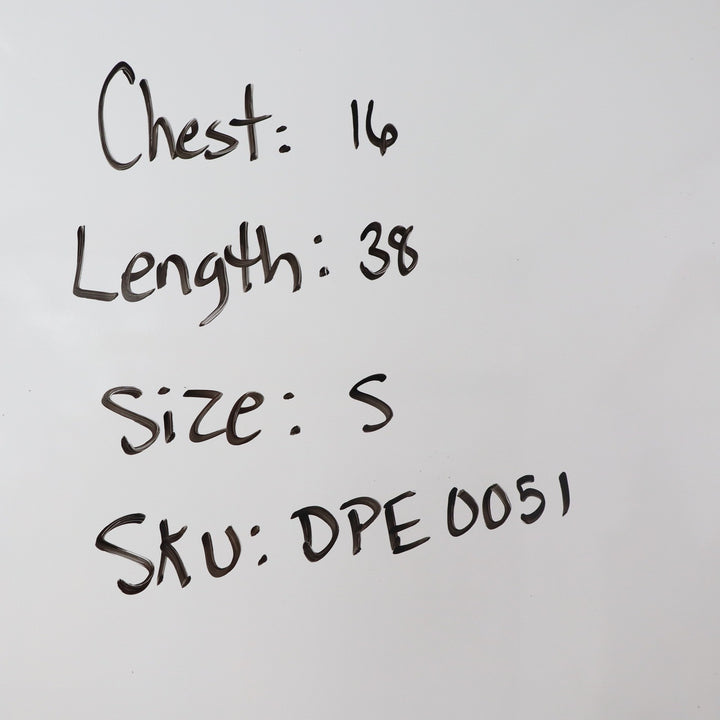 Chest: 16
Length: 38
Size: S
SKU: DPE 0051